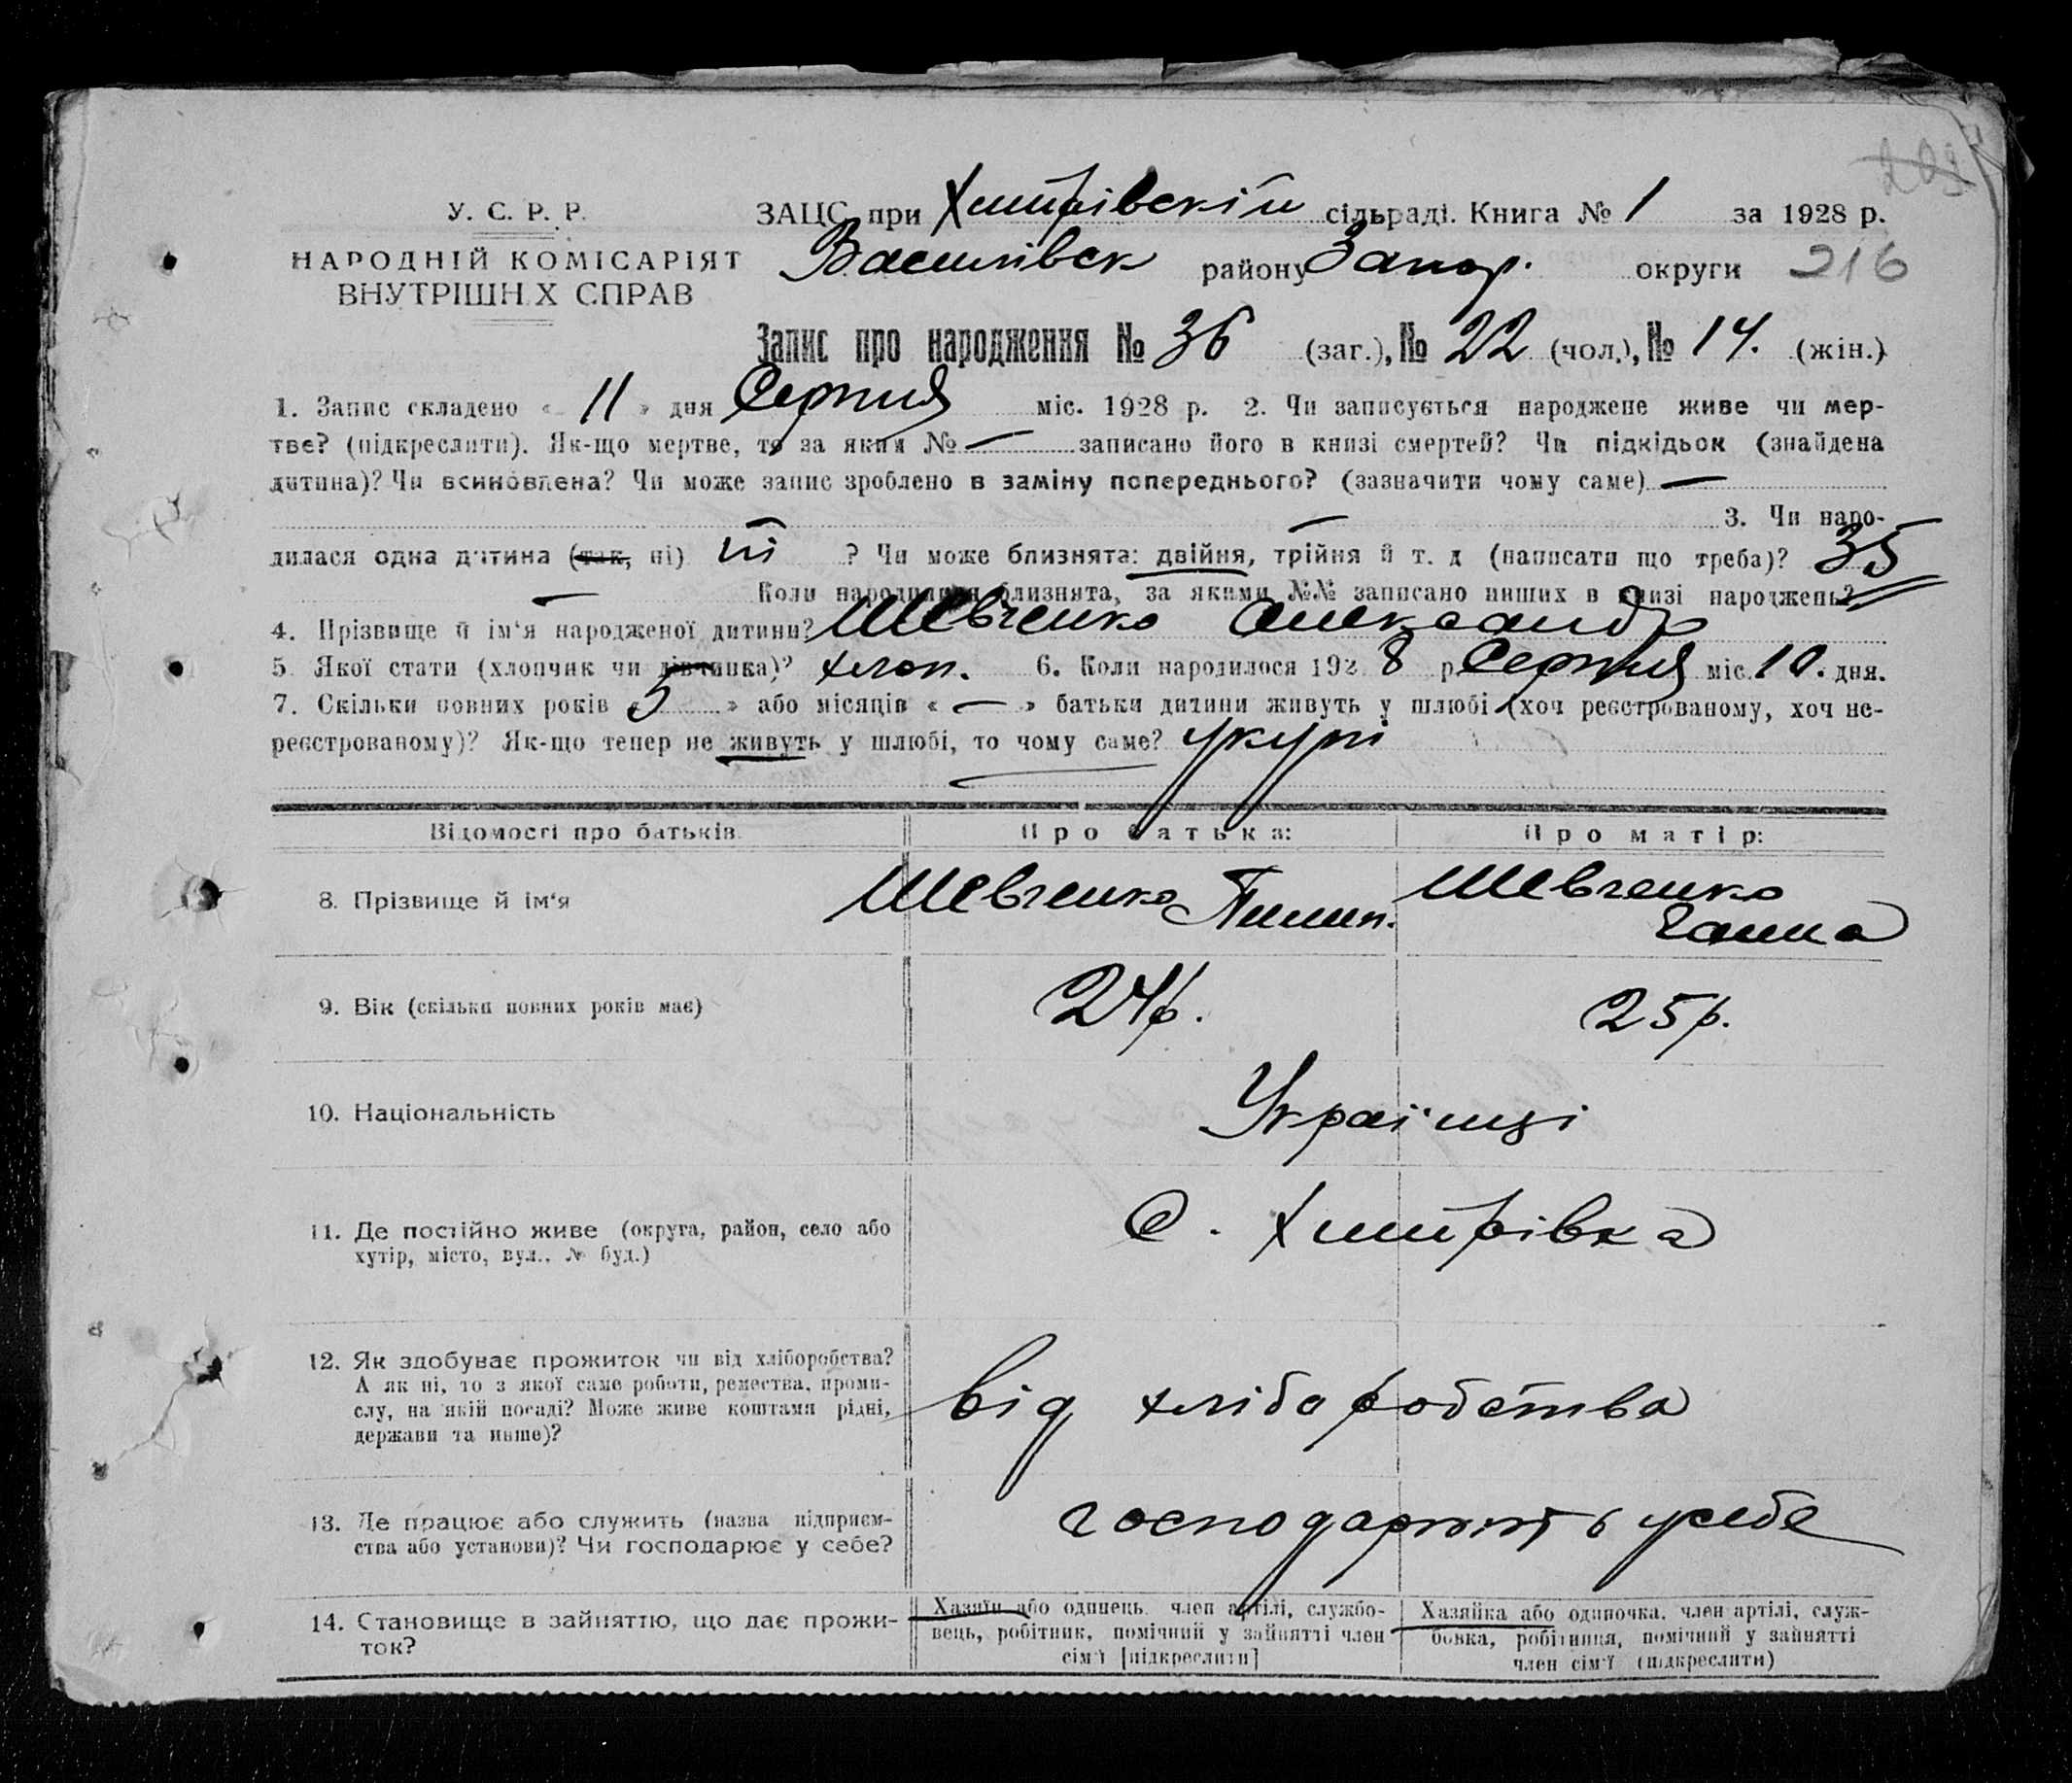 203
У. С. Р. Р.
НАРОДНІЙ КОМІСАРІЯТ
ВНУТРІШН Х СПРАВ
ЗАЦС при Хмирівскій сільраді. Книга № 1 за 1928 р.
Василівськ району Запор. округи 216
Запис про народження № 36 (заг.), № 22 (чол.), № 14. (жін.)
1. Запис складено « 11 » дня Серпня міс. 1928 р. 2. Чи записується народжене живе чи мер-
тве? (підкреслити). Як-що мертве, то за яким № — записано його в книзі смертей? Чи підкідьок (знайдена
дитина)? Чи всиновлена? Чи може запис зроблено в заміну попереднього? (зазначити чому саме) —
— — 3. Чи наро-
дилася одна дитина (так, ні) ні ? Чи може близнята: двійня, трійня й т. д (написати що треба)? 35
— Коли народилися близнята, за якими №№ записано инших в книзі народжень?
4. Прізвище й ім'я народженої дитини? Шевченко Олександр
5. Якої стати (хлопчик чи дівчинка)? хлоп. 6. Коли народилося 192 8 р. Серпня міс. 10. дня.
7. Скільки повних років « 5 » або місяців « — » батьки дитини живуть у шлюбі (хоч реєстрованому, хоч не-
реєстрованому)? Як-що тепер не живуть у шлюбі, то чому саме? укупі
Відомості про батьків. Про батька: Про матір:
8. Прізвище й ім'я Шевченко Пилип. Шевченко
Ганна
9. Вік (скільки повних років має) 24р. 25р.
10. Національність Українці
11. Де постійно живе (округа, район, село або
хутір, місто, вул., № буд.) С. Хмирівка
12. Як здобуває прожиток чи від хліборобства?
А як ні, то з якої саме роботи, ремества, проми-
слу, на якій посаді? Може живе коштами рідні,
держави та инше)? від хліборобства
13. Де працює або служить (назва підприєм-
ства або установи)? Чи господарює у себе? господарюють у себе
14. Становище в зайняттю, що дає прожи-
ток?
Хазяїн або одинець, член артілі, службо-
вець, робітник, помічний у зайнятті член
сім'ї [підкреслити]
Хазяйка або одиночка, член артілі, служ-
бовка, робітниця, помічний у зайнятті
член сім'ї (підкреслити)